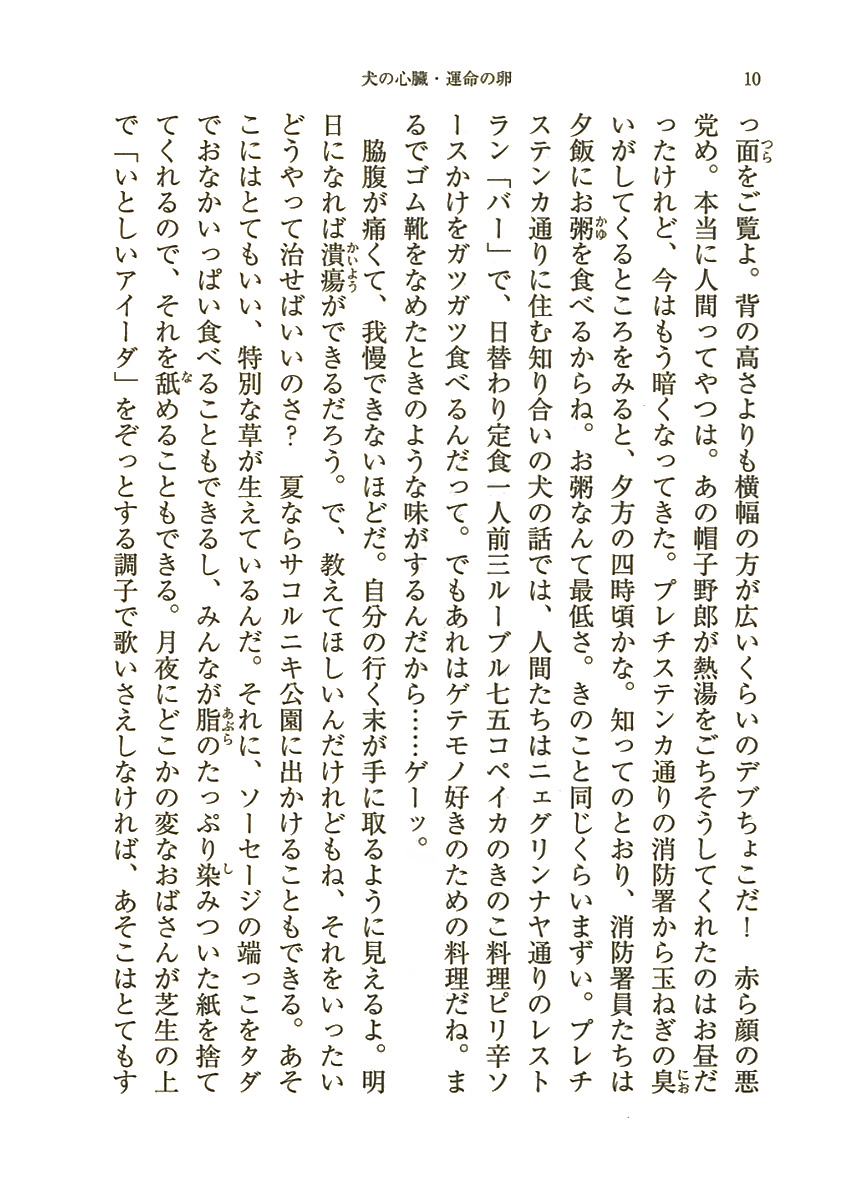 犬の心臓・運命の卵
10
っ面をご覧よ。背の高さよりも横幅の方が広いくらいのデブちょこだ！　赤ら顔の悪
党め。本当に人間ってやつは。あの帽子野郎が熱湯をごちそうしてくれたのはお昼だ
ったけれど、今はもう暗くなってきた。プレチステンカ通りの消防署から玉ねぎの臭
いがしてくるところをみると、夕方の四時頃かな。知ってのとおり、消防署員たちは
夕飯にお粥を食べるからね。お粥なんて最低さ。きのこと同じくらいまずい。プレチ
ステンカ通りに住む知り合いの犬の話では、人間たちはニェグリンナヤ通りのレスト
ラン「バー」で、日替わり定食一人前三ルーブル七五コペイカのきのこ料理ピリ辛ソ
ースかけをガツガツ食べるんだって。でもあれはゲテモノ好きのための料理だね。ま
るでゴム靴をなめたときのような味がするんだから……ゲーッ。
　脇腹が痛くて、我慢できないほどだ。自分の行く末が手に取るように見えるよ。明
日になれば潰瘍ができるだろう。で、教えてほしいんだけれどもね、それをいったい
どうやって治せばいいのさ？　夏ならサコルニキ公園に出かけることもできる。あそ
こにはとてもいい、特別な草が生えているんだ。それに、ソーセージの端っこをタダ
でおなかいっぱい食べることもできるし、みんなが脂のたっぷり染みついた紙を捨て
てくれるので、それを舐めることもできる。月夜にどこかの変なおばさんが芝生の上
で「いとしいアイーダ」をぞっとする調子で歌いさえしなければ、あそこはとてもす